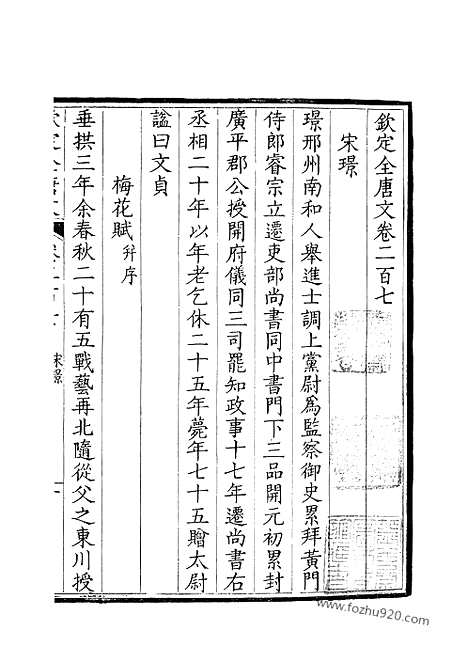 欽定全唐文卷二百七
宋璟
璟邢州南和人舉進士調上黨尉為監察御史累拜黃門
侍郎睿宗立遷吏部尚書同中書門下三品開元初累封
廣平郡公授開府儀同三司罷知政事十七年遷尚書右
丞相二十年以年老乞休二十五年薨年七十五贈太尉
諡曰文貞
梅花賦并序
垂拱三年余春秋二十有五戰藝再北隨從父之東川授
宋璟
一
www.fozhu920.com